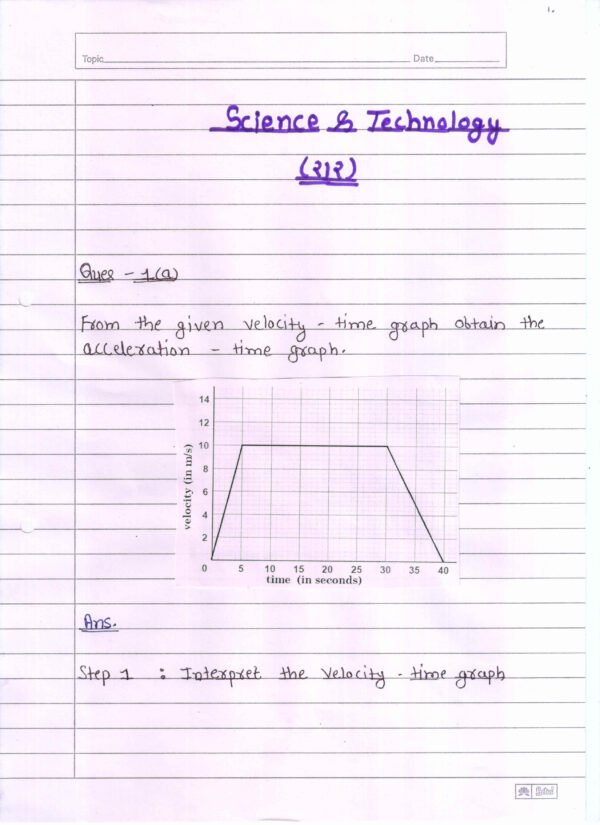 1.
Topic
Date
Science & Technology
(२१२)
Ques - 1(a)
From the given velocity - time graph obtain the
acceleration - time graph.
14
12
10
8
6
4
2
0 5 10 15 20 25 30 35 40
velocity (in m/s)
time (in seconds)
Ans.
Step 1 : Interpret the velocity - time graph